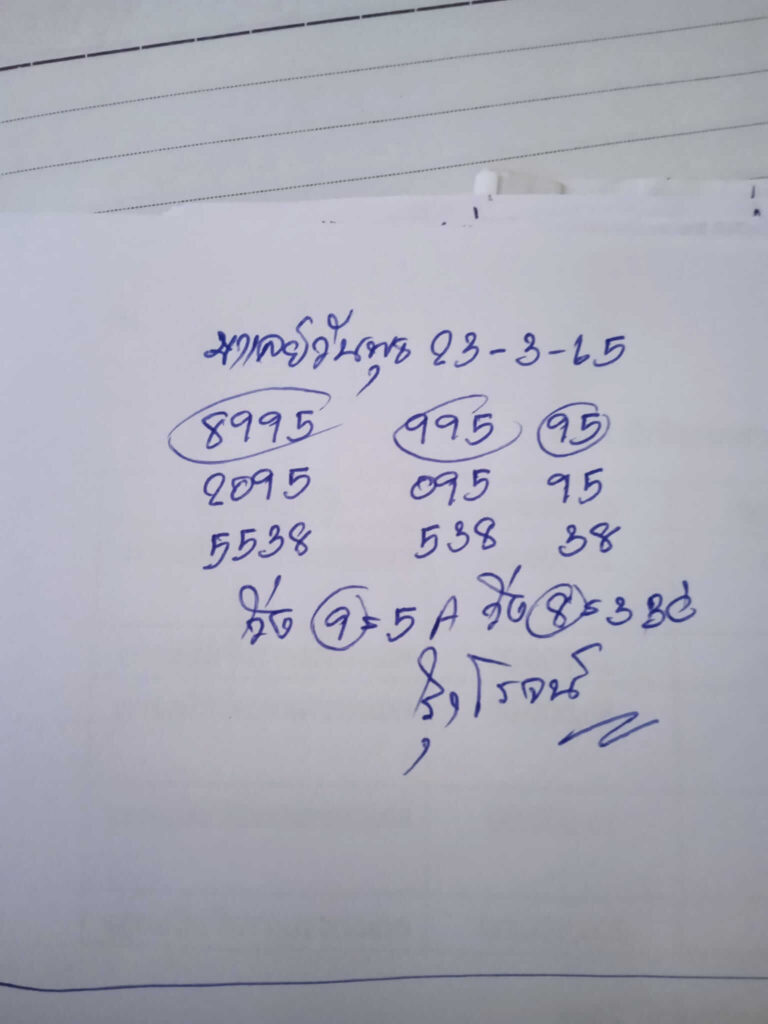 มาเลย์วันพุธ 23-3-65
8995 995 95
2095 095 95
5538 538 38
วิ่ง 9=5 A วิ่ง 8=3
โรจน์